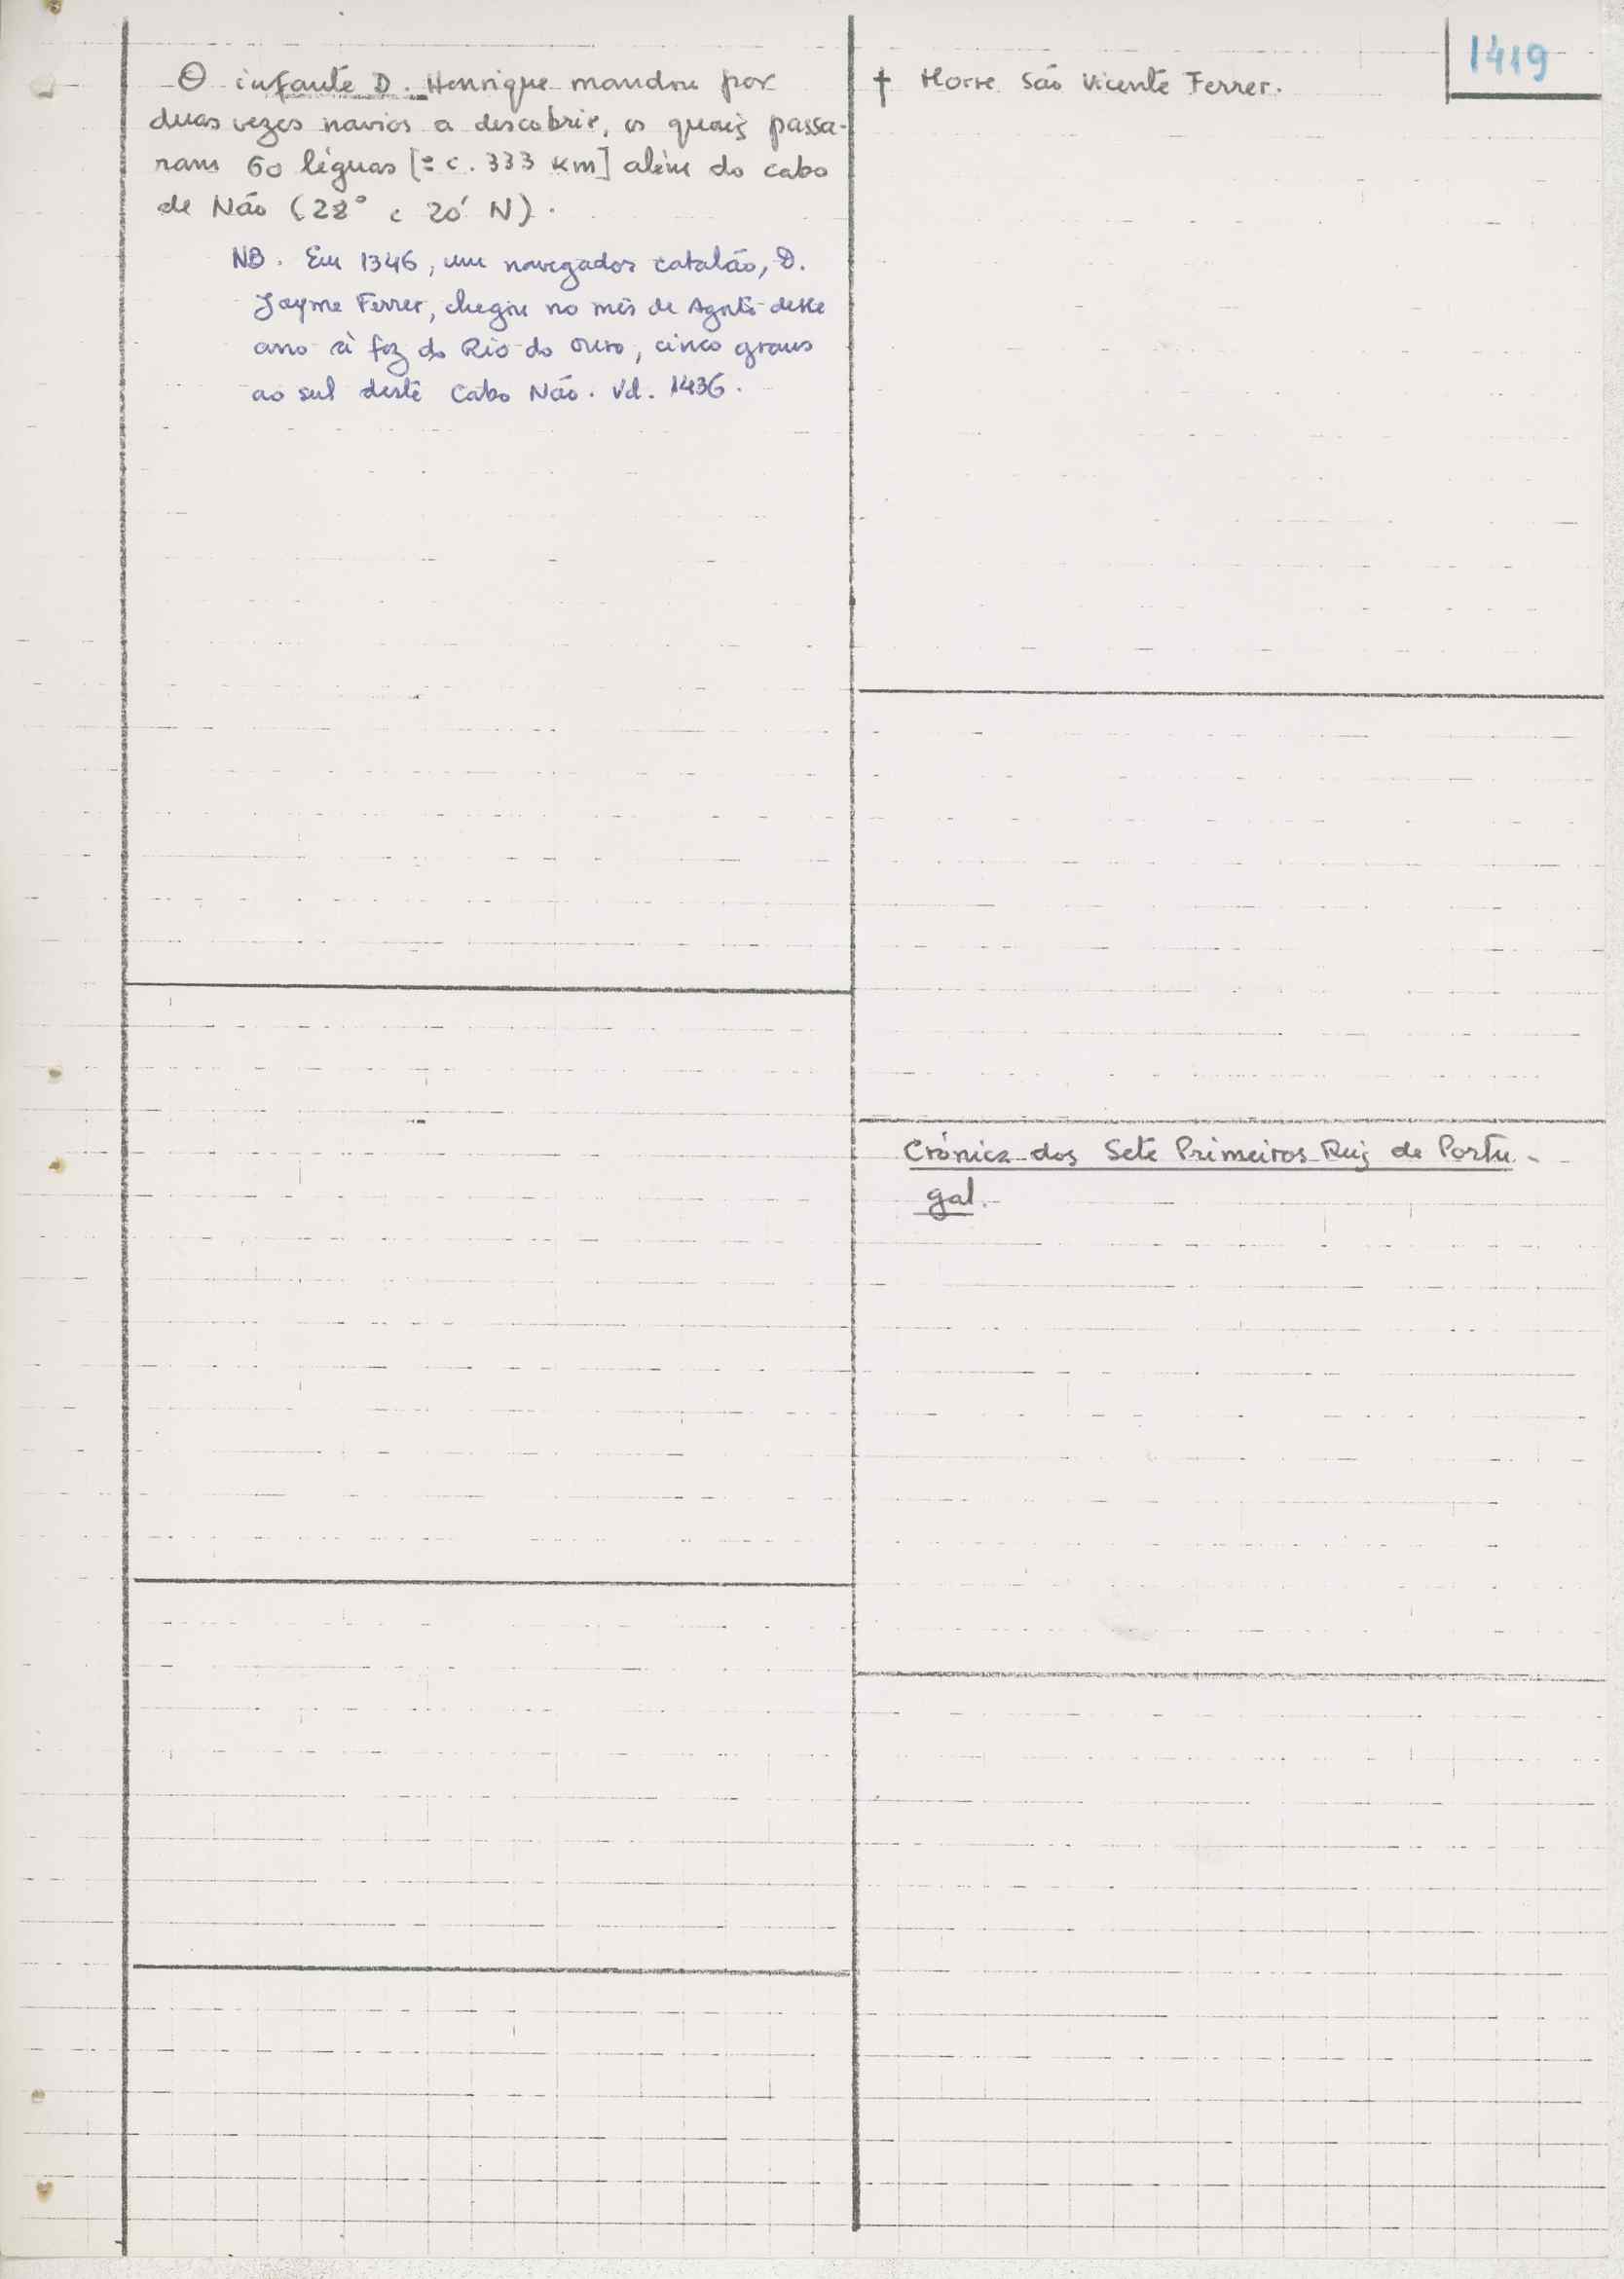 1419
O infante D. Henrique mandou por
duas vezes navios a descobrir, os quais passa-
ram 60 léguas [= c. 333 km] além do cabo
de Não (28° e 20' N).
NB. Em 1346, um navegador catalão, D.
Jayme Ferrer, chegou no mês de Agosto deste
ano à foz do Rio do Ouro, cinco graus
ao sul deste Cabo Não. Vd. 1436.
† Morre São Vicente Ferrer.
Crónica dos Sete Primeiros Reis de Portu-
gal.